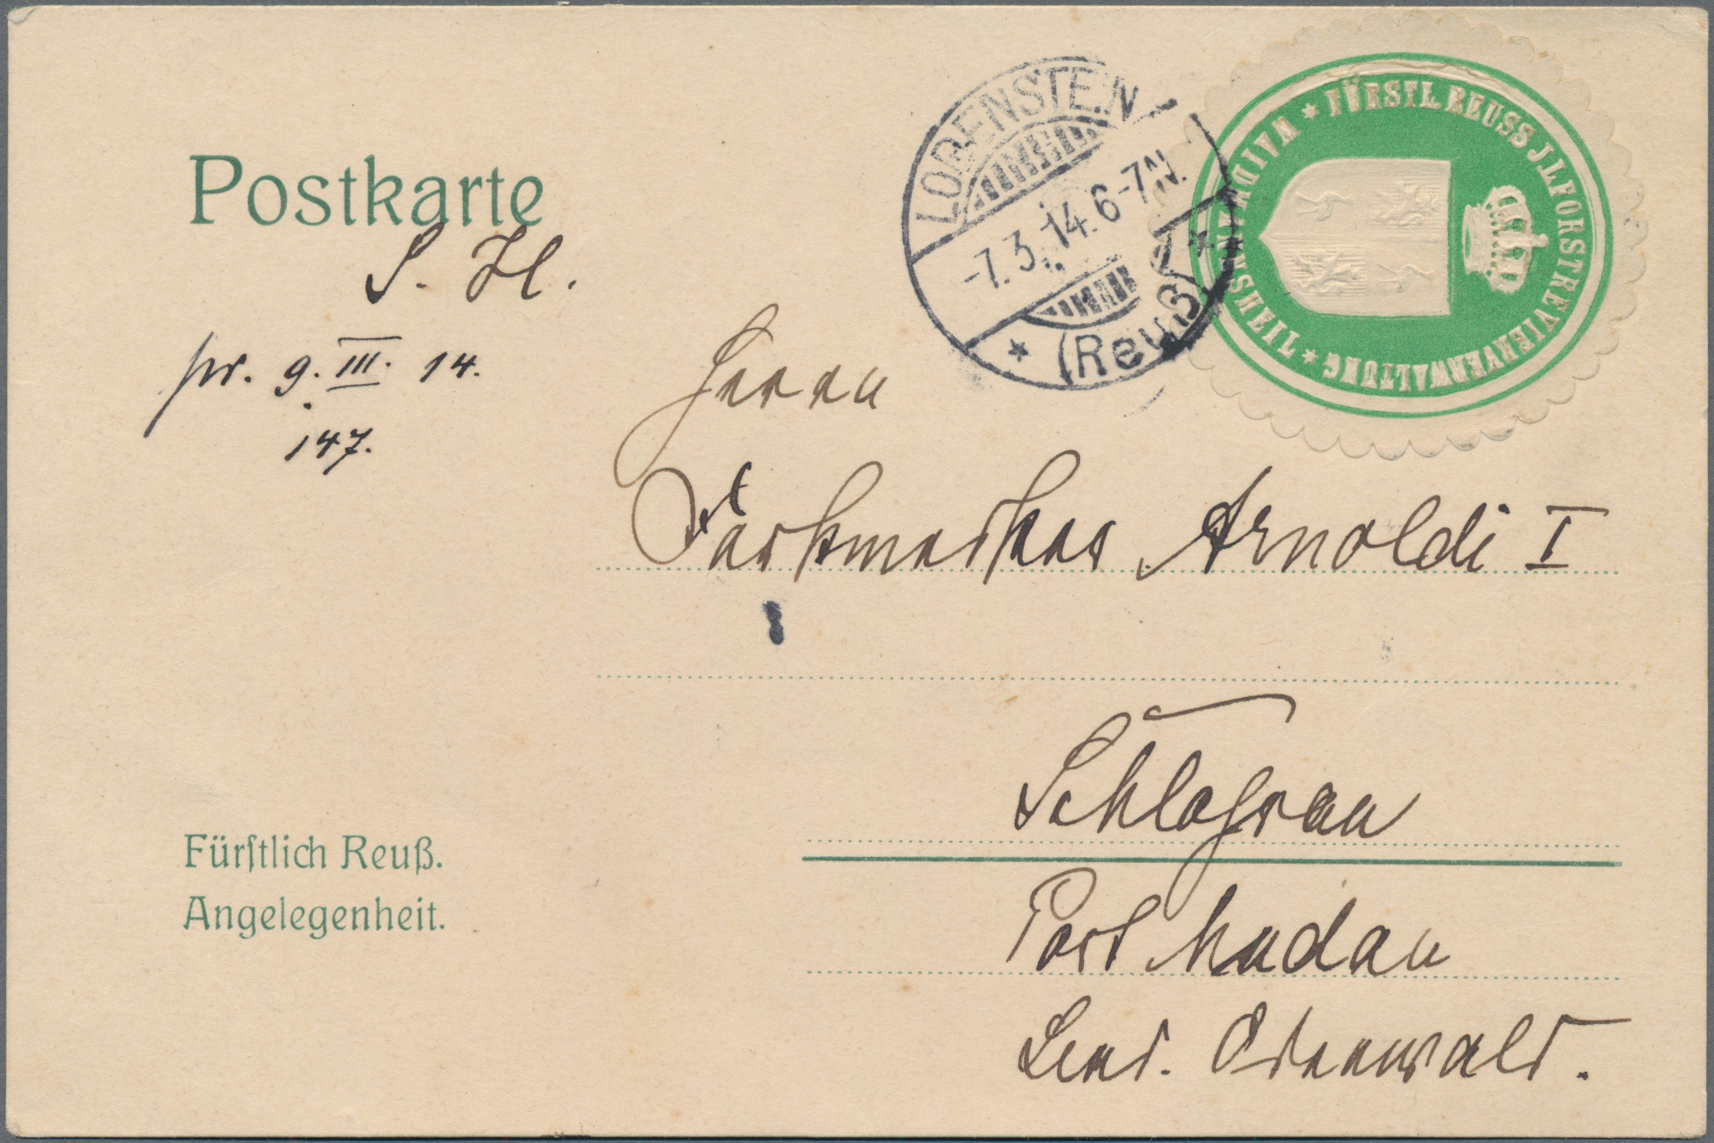 Postkarte
S. H.
pr. 9. III. 14.
147.
LOBENSTEIN
-7.3.14.6-7N.
* (Reuß) *
* FÜRSTL. REUSS J.L. FORSTREVIERVERWALTUNG * WAIDMANNSHEIL
Herrn
Arnoldi I
Schloßrau
Post
Odenwald.
Fürstlich Reuß.
Angelegenheit.